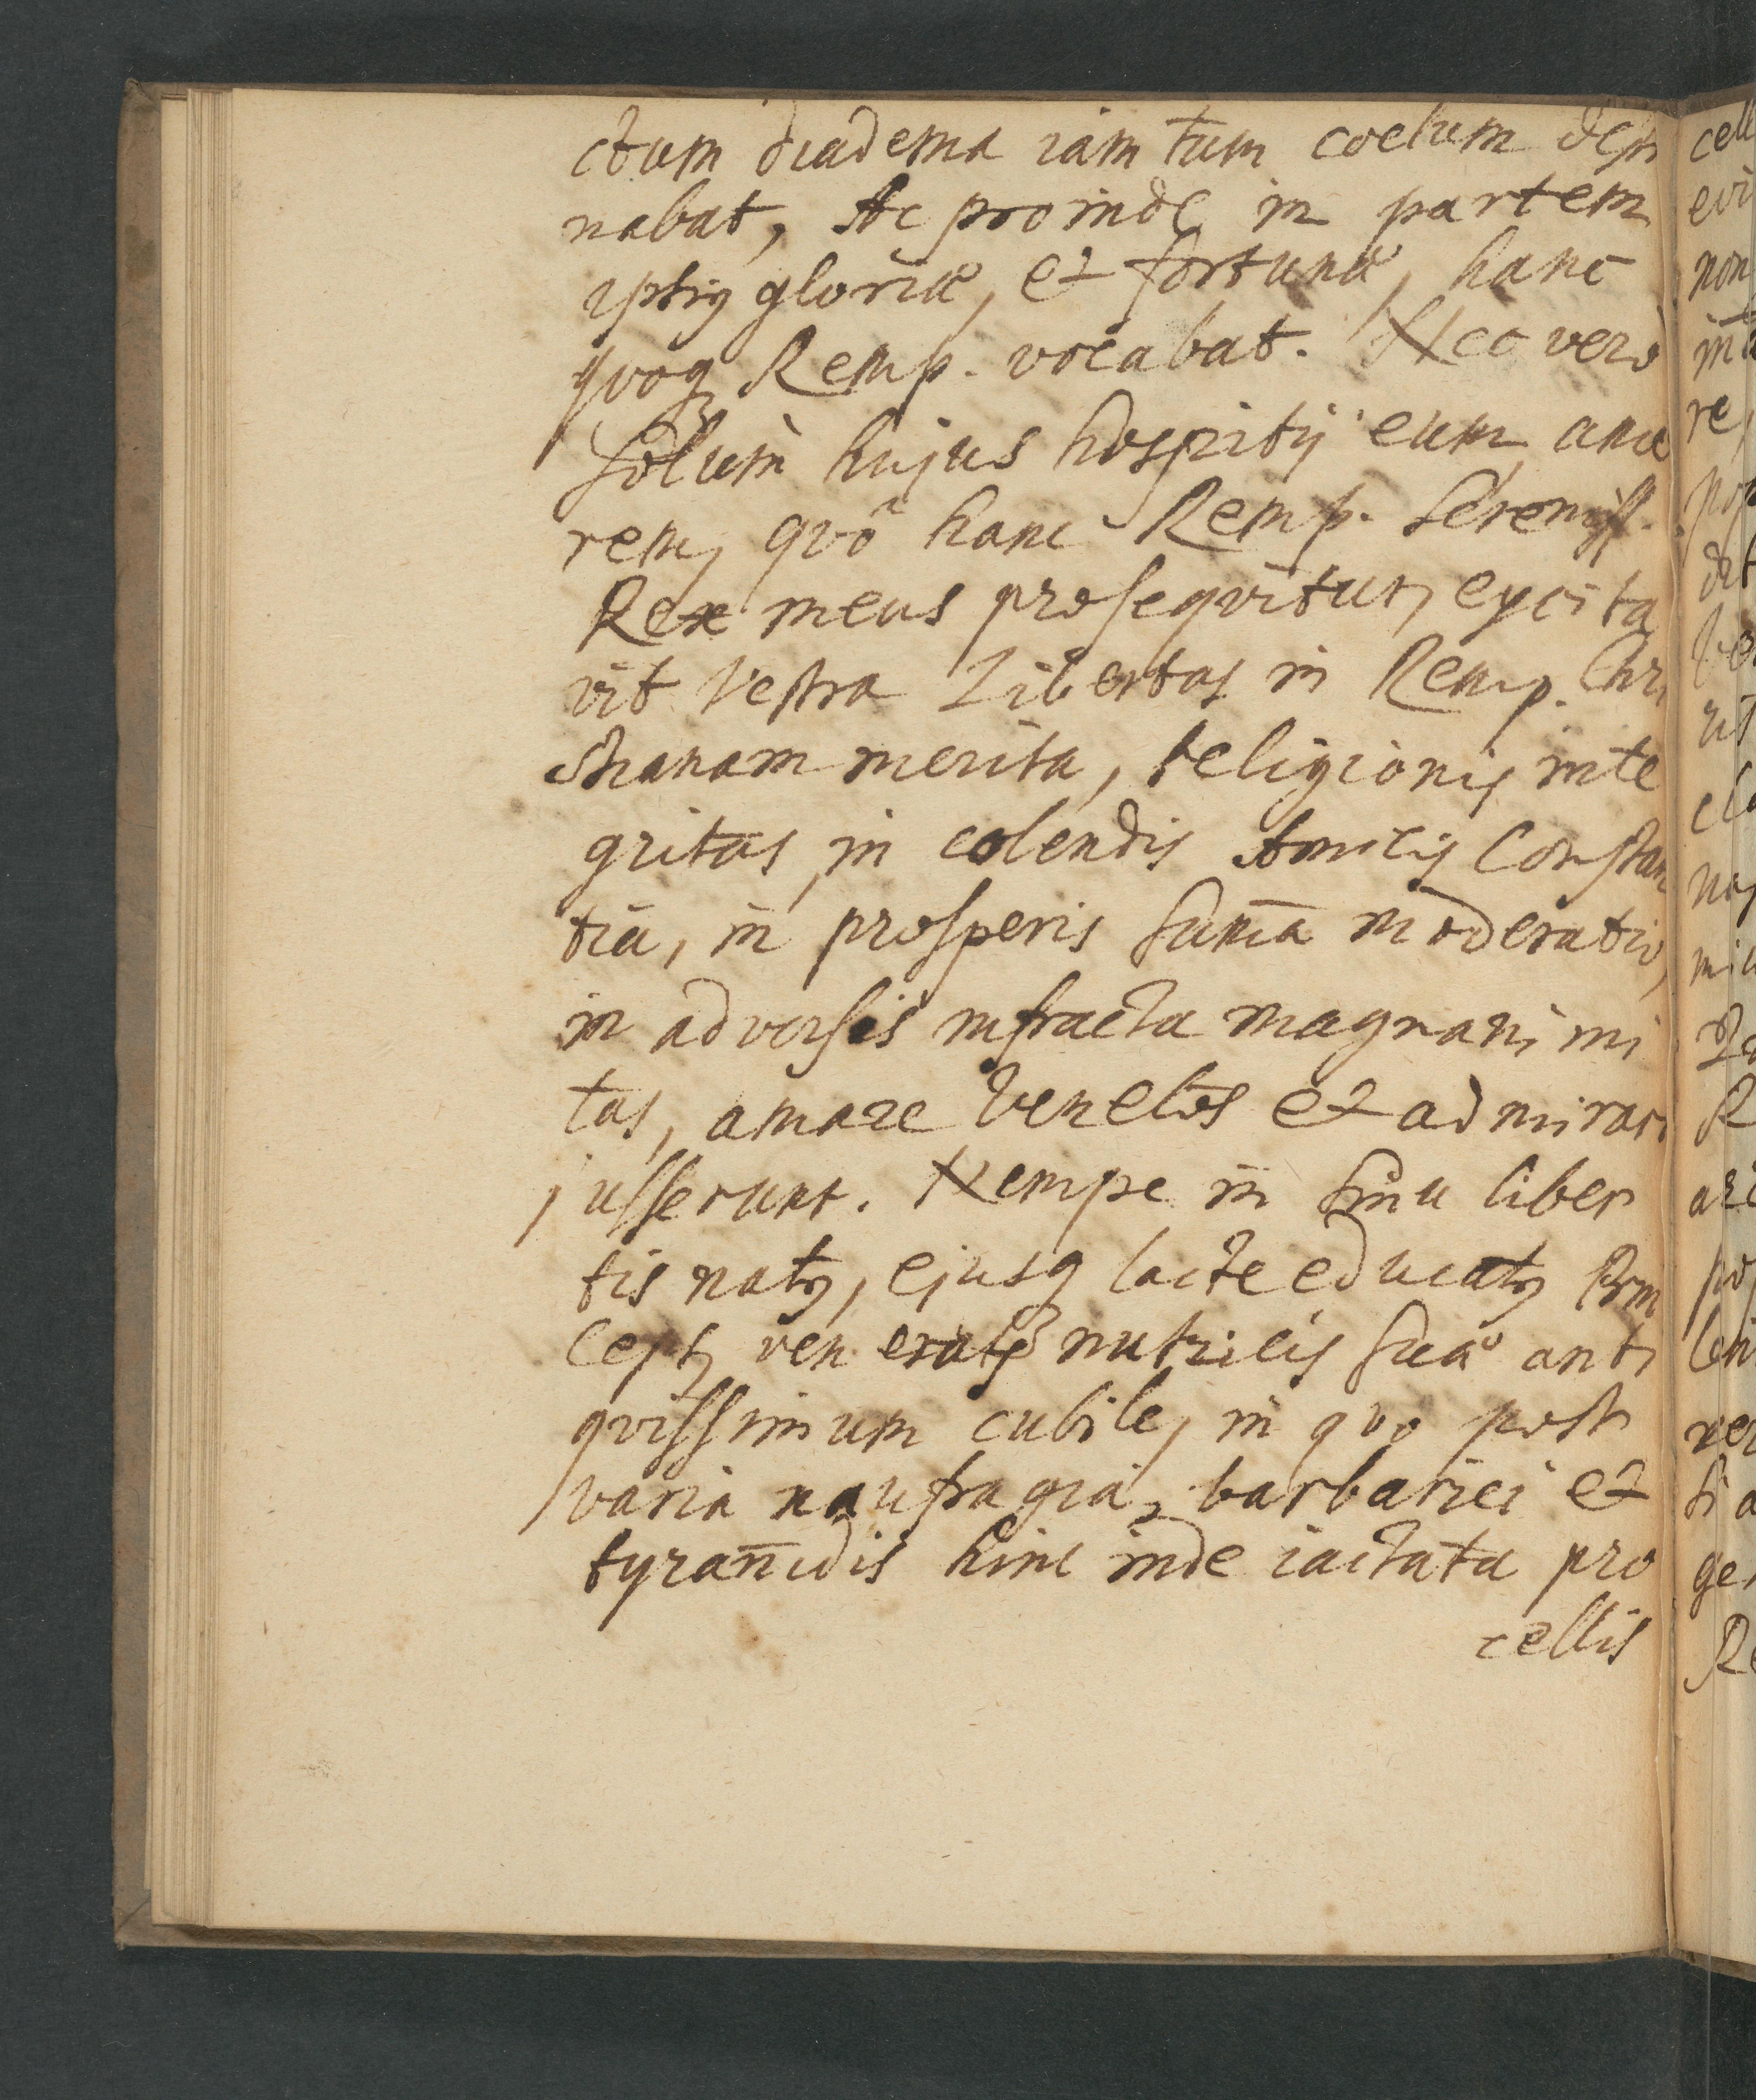 ctum diadema iam tum coelum desti
nabat, Ac proinde in partem
ipsiꝰ gloriæ, et fortunæ, hanc
quoqꝫ Remp. vocabat. Nec verò
solum hujus hospitij eum amo
rem, quô hanc Remp. Sereniss.
Rex meus prosequitur, excita
vit Vestra Libertas in Remp. Chri
stianam merita, religionis inte
gritas, in colendis Amicis Constan
tia, in prosperis sum̄a moderatio,
in adversis infracta magnanimi
tas, amare Venetos et admirari
jusserunt. Nempe in sinu liber
tis natꝰ, ejusq lacte educatꝰ Prin
ceps, veneratꝰ nutricis suæ anti
quissimum cubile, in quo post
varia naufragia, barbariei et
tyran̄idis hinc inde iactata pro
cellis
cell
evi
non
re,